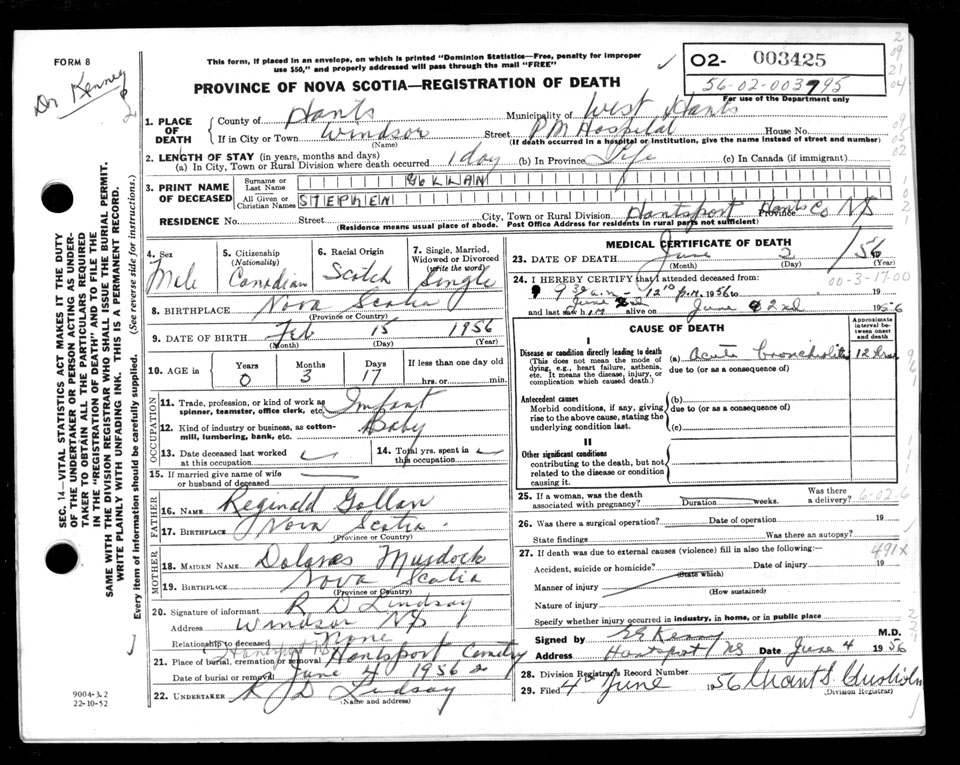 FORM 8
Dr Kenney
This form, if placed in an envelope, on which is printed "Dominion Statistics—Free, penalty for improper
use $50," and properly addressed will pass through the mail "FREE"
O2- 003425
56-02-003795
For use of the Department only
PROVINCE OF NOVA SCOTIA—REGISTRATION OF DEATH
1. PLACE OF DEATH
County of Hants Municipality of West Hants
If in City or Town Windsor Street PM Hospital House No.
(Name) (If death occurred in a hospital or institution, give the name instead of street and number)
2. LENGTH OF STAY (in years, months and days)
(a) In City, Town or Rural Division where death occurred 1 day (b) In Province Life (c) In Canada (if immigrant)
3. PRINT NAME OF DECEASED
Surname or Last Name GOLLAN
All Given or Christian Names STEPHEN
RESIDENCE No. Street City, Town or Rural Division Hantsport Province Hants Co NS
(Residence means usual place of abode. Post Office Address for residents in rural parts not sufficient)
4. Sex Male
5. Citizenship (Nationality) Canadian
6. Racial Origin Scotch
7. Single, Married, Widowed or Divorced (write the word) Single
8. BIRTHPLACE Nova Scotia
(Province or Country)
9. DATE OF BIRTH Feb 15 1956
(Month) (Day) (Year)
10. AGE in Years 0 Months 3 Days 17 If less than one day old hrs. or min.
OCCUPATION
11. Trade, profession, or kind of work as spinner, teamster, office clerk, etc. Infant
12. Kind of industry or business, as cotton-mill, lumbering, bank, etc. Baby
13. Date deceased last worked at this occupation
14. Total yrs. spent in this occupation
15. If married give name of wife or husband of deceased
FATHER
16. NAME Reginald Gollan
17. BIRTHPLACE Nova Scotia
(Province or Country)
MOTHER
18. MAIDEN NAME Dolores Murdock
19. BIRTHPLACE Nova Scotia
(Province or Country)
20. Signature of informant R D Lindsay
Address Windsor NS
Relationship to deceased None
21. Place of burial, cremation or removal Hantsport Cemetry
Date of burial or removal June 4 1956
22. UNDERTAKER R D Lindsay
(Name and address)
MEDICAL CERTIFICATE OF DEATH
23. DATE OF DEATH June 2 1956
(Month) (Day) (Year)
24. I HEREBY CERTIFY that I attended deceased from:
9 30 a.m. - 12 10 p.m. 1956 to 19
and last saw him alive on June 2nd 1956
00-3-17.00
CAUSE OF DEATH
Approximate interval between onset and death
I
Disease or condition directly leading to death (a) Acute bronchiolitis 12 hrs
(This does not mean the mode of dying, e.g., heart failure, asthenia, etc. It means the disease, injury, or complication which caused death.)
due to (or as a consequence of)
Antecedent causes
Morbid conditions, if any, giving rise to the above cause, stating the underlying condition last.
(b)
due to (or as a consequence of)
(c)
II
Other significant conditions
contributing to the death, but not related to the disease or condition causing it.
25. If a woman, was the death associated with pregnancy? Duration weeks. Was there a delivery?
6-02-6
26. Was there a surgical operation? Date of operation 19
State findings Was there an autopsy?
27. If death was due to external causes (violence) fill in also the following:— 491X
Accident, suicide or homicide? Date of injury 19
(State which)
Manner of injury
(How sustained)
Nature of injury
Specify whether injury occurred in industry, in home, or in public place
Signed by M.D.
Address Hantsport NS Date June 4 1956
28. Division Registrar's Record Number
29. Filed 4th June 1956 Grant S. Chisholm
(Division Registrar)
SEC. 14—VITAL STATISTICS ACT MAKES IT THE DUTY
OF THE UNDERTAKER OR PERSON ACTING AS UNDERTAKER TO OBTAIN ALL THE PARTICULARS REQUIRED
IN THE "REGISTRATION OF DEATH" AND TO FILE THE
SAME WITH THE DIVISION REGISTRAR WHO SHALL ISSUE THE BURIAL PERMIT.
WRITE PLAINLY WITH UNFADING INK. THIS IS A PERMANENT RECORD.
Every item of information should be carefully supplied. (See reverse side for instructions.)
9004-3.2
22-10-52